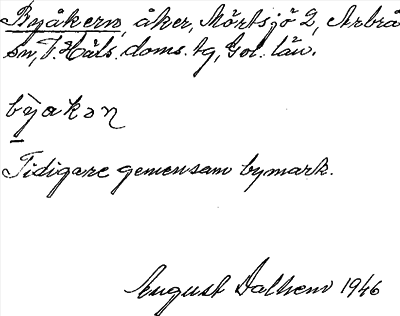 Byåkern, åker, Mörtsjö 2, Arbrå
sn, V. Häls. doms. tg, Gvl. län.
bỳakən
Tidigare gemensam bymark.
August Dalhem 1946